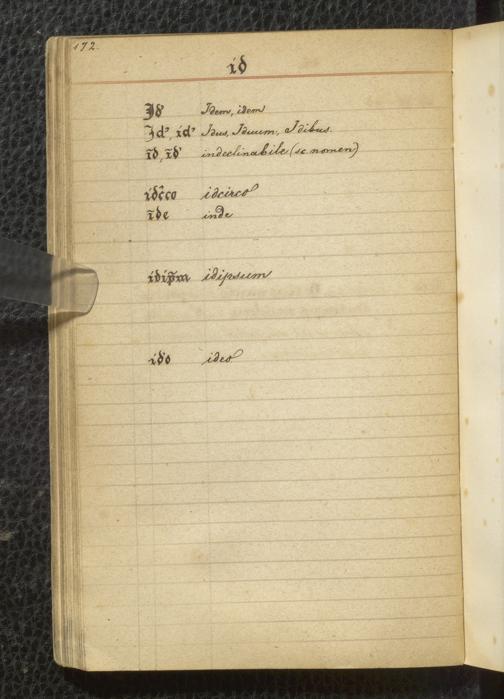 172.
id
Id̉ Idem, idem
Id', id' Idus, Iduum, Idibus.
īd, īd' indeclinabile (sc nomen)
idc̄co idcirco
īde inde
idip̄m idipsum
id'o ideo